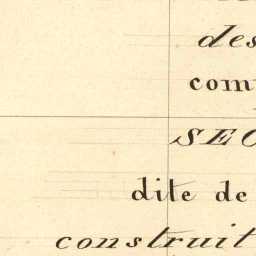 des
com
SEC
dite de
construit